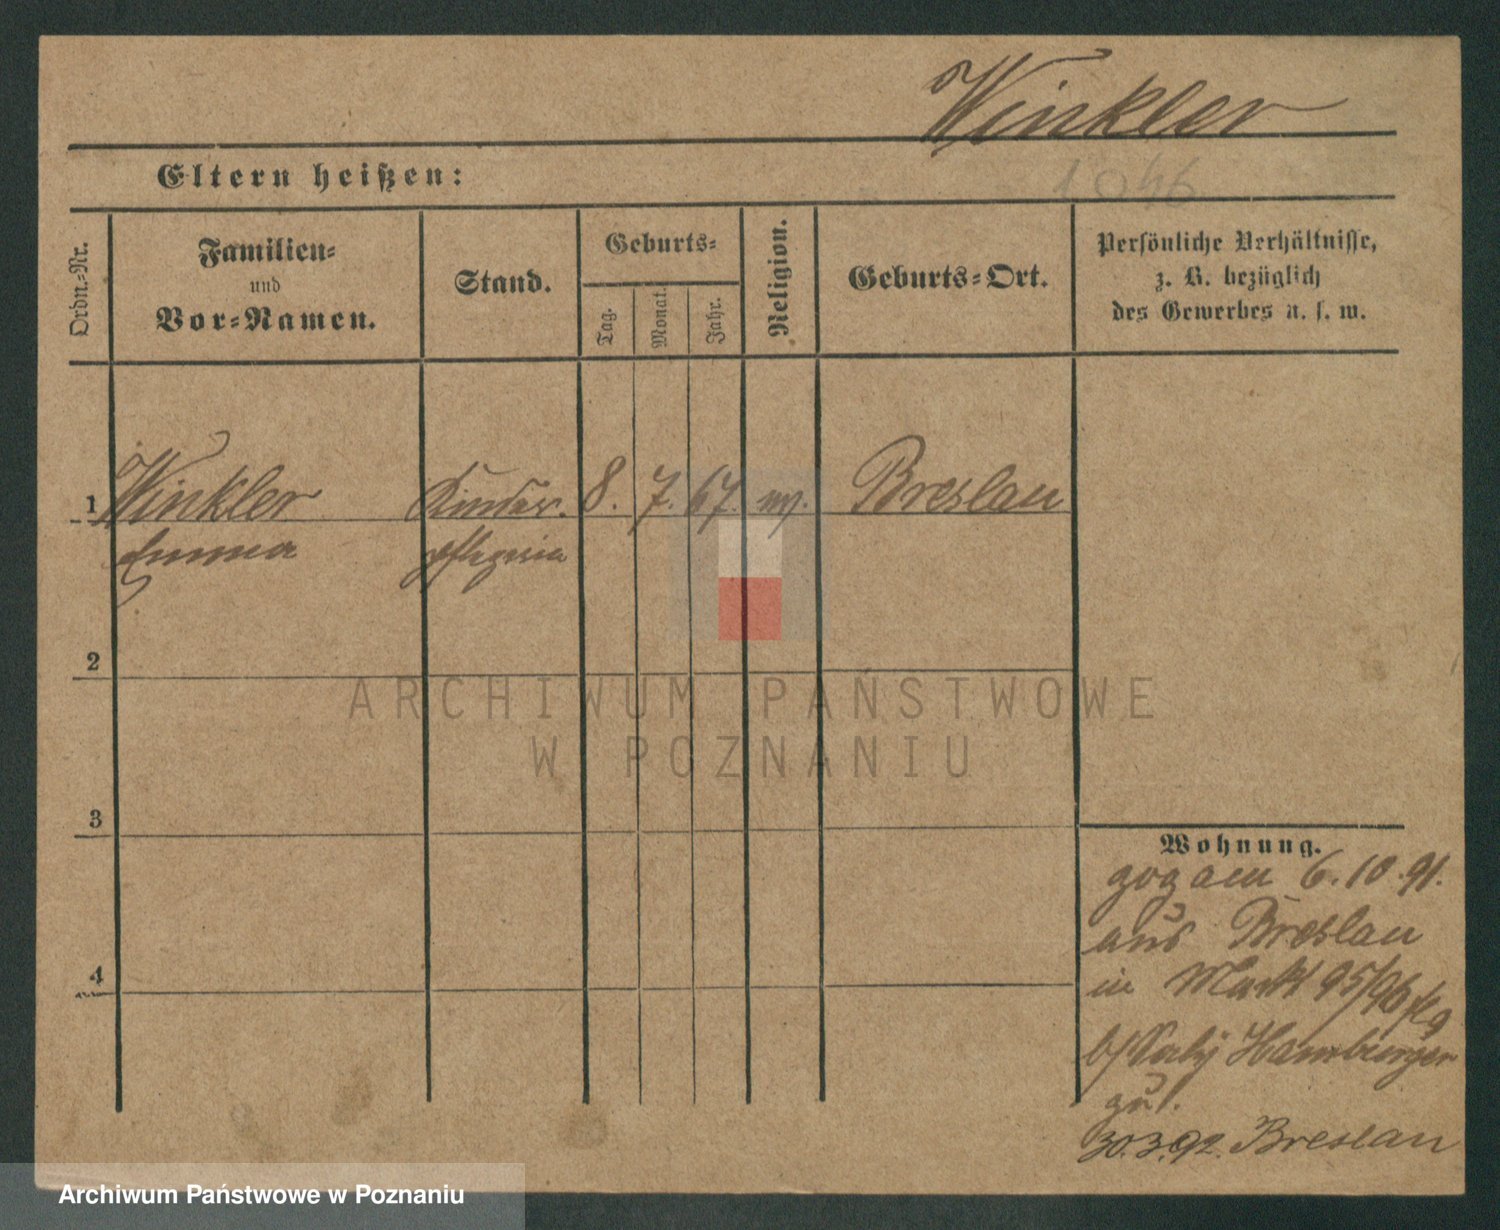 Winkler
1046
Eltern heißen:
Ordn.-Nr.
Familien-
und
Vor-Namen.
Stand.
Geburts-
Tag.
Monat.
Jahr.
Religion.
Geburts-Ort.
Persönliche Verhältnisse,
z. B. bezüglich
des Gewerbes u. s. w.
1 Winkler Kinder- 8. 7. 67. Breslau
Emma pflegerin
2
3
4
Wohnung.
zog am 6.10.91.
aus Breslau
in Markt 95/96
b/ Hamburger
zu.
30.3.92. Breslau
ARCHIWUM PAŃSTWOWE
W POZNANIU
Archiwum Państwowe w Poznaniu